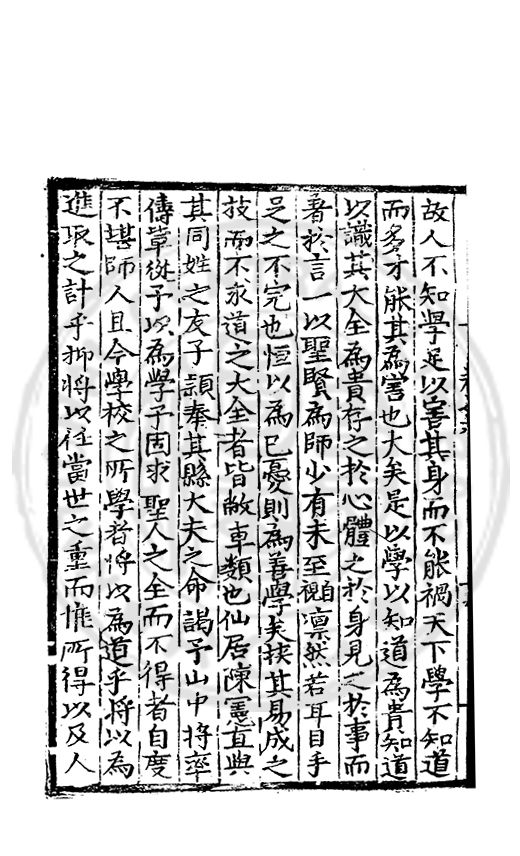 故人不知學足以害其身而不能禍天下學不知道
而多才能其為害也大矣是以學以知道為貴知道
以識其大全為貴存之於心體之於身見之於事而
著於言一以聖賢為師少有未至顧凛然若耳目手
足之不完也恒以為己憂則為善學矣挟其易成之
技而不求道之大全者皆敝車類也仙居陳憲直與
其同姓之友子頴奉其縣大夫之命謁予山中将率
傳草從予以為學予固求聖人之全而不得者自度
不堪師人且今學校之所學者将以為道乎将以為
進取之計乎抑将以任當世之重而惟所得以及人